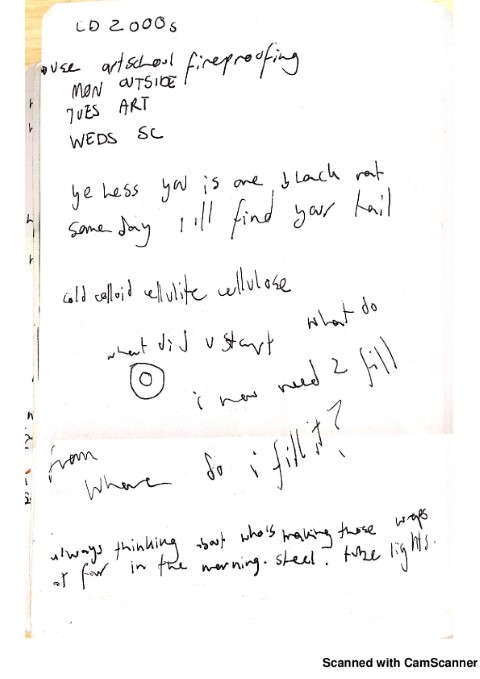 LD 2000s
use artschool fireproofing
MON OUTSIDE
TUES ART
WEDS SC
ye hess you is one black rat
some day i ill find your tail
cold colloid cellulite cellulose
what did u start what do
i now need 2 fill
from
where do i fill it?
always thinking about who's making those wraps
at four in the morning. steel. tube lights.
Scanned with CamScanner